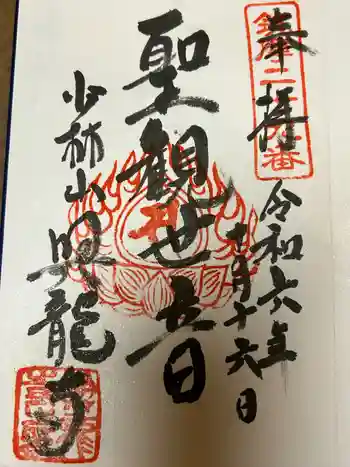 奉拝
令和六年
十一月十六日
聖観世音
少林山
興龍寺